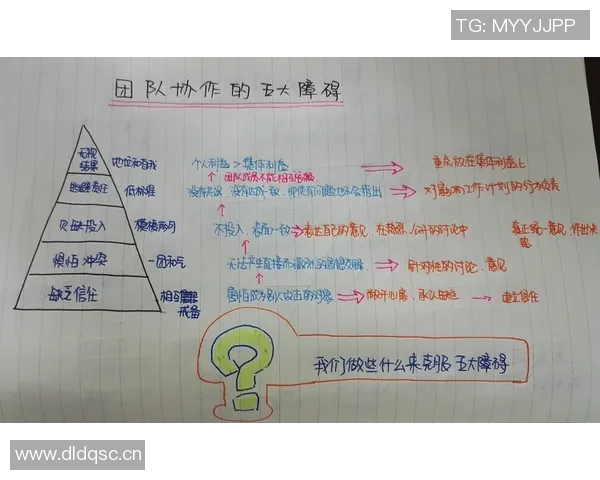 TG: MYYJJPP
团队协作的五大障碍
无视结果 地位和自我 个人利益 > 集体利益 重点放在集体利益上
团队成员不能相互
逃避责任 低标准 没有共识、没有达成一致、即使有问题也不会指出 对影响工作计划的行为负责
欠缺投入 模棱两可 不投入、表面一致 表达自己的意见、在热烈、公开的讨论中 真正统一意见,作出决定
惧怕冲突 一团和气 无法产生直接而激烈的思想交锋 针对性的讨论、意见
缺乏信任 相互戒备 害怕成为别人攻击的对象 敞开心扉、承认缺点 建立信任
我们做些什么来克服五大障碍
www.dldqsc.cn